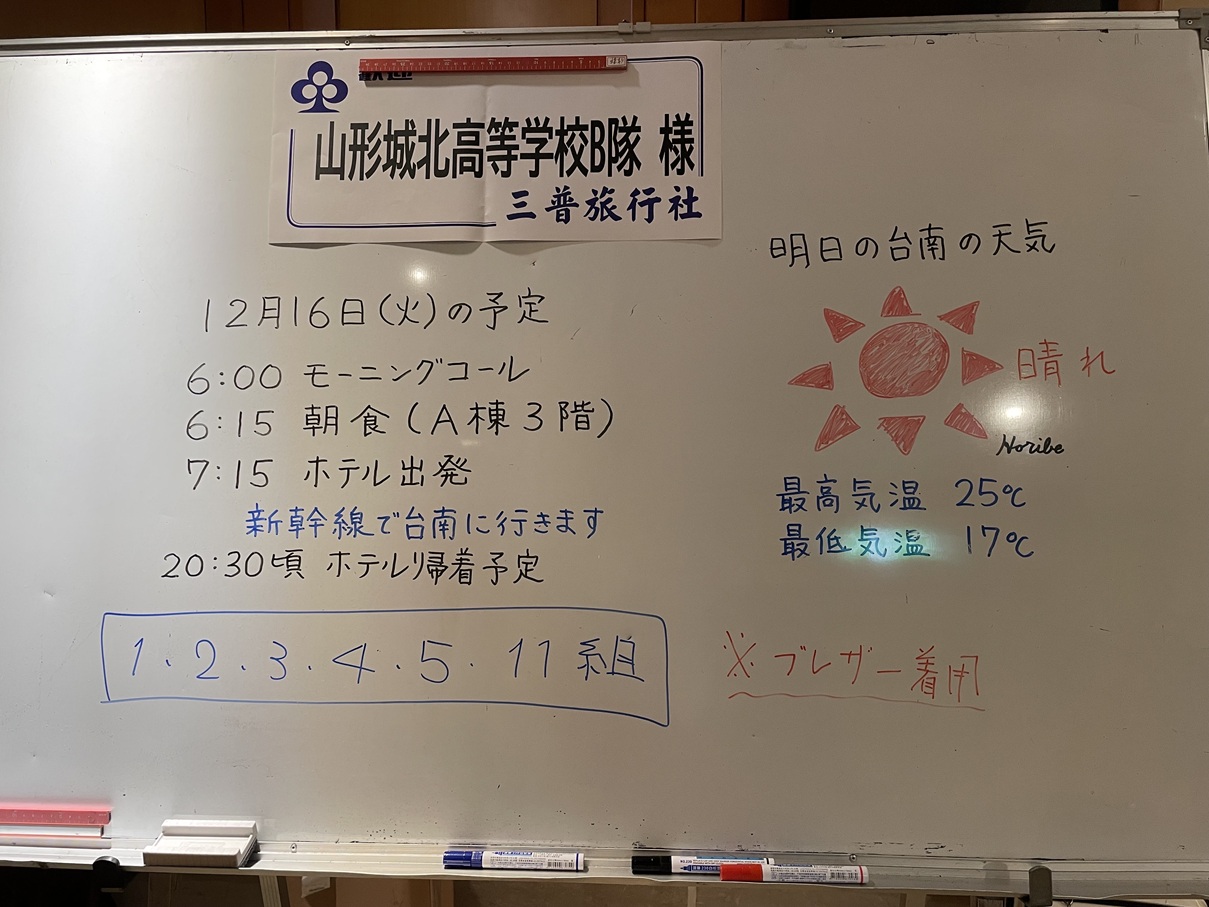 歓迎
山形城北高等学校B隊 様
三普旅行社
12月16日(火)の予定
6:00 モーニングコール
6:15 朝食(A棟3階)
7:15 ホテル出発
新幹線で台南に行きます
20:30頃 ホテル帰着予定
1・2・3・4・5・11組
明日の台南の天気
晴れ
Horibe
最高気温 25℃
最低気温 17℃
※ブレザー着用